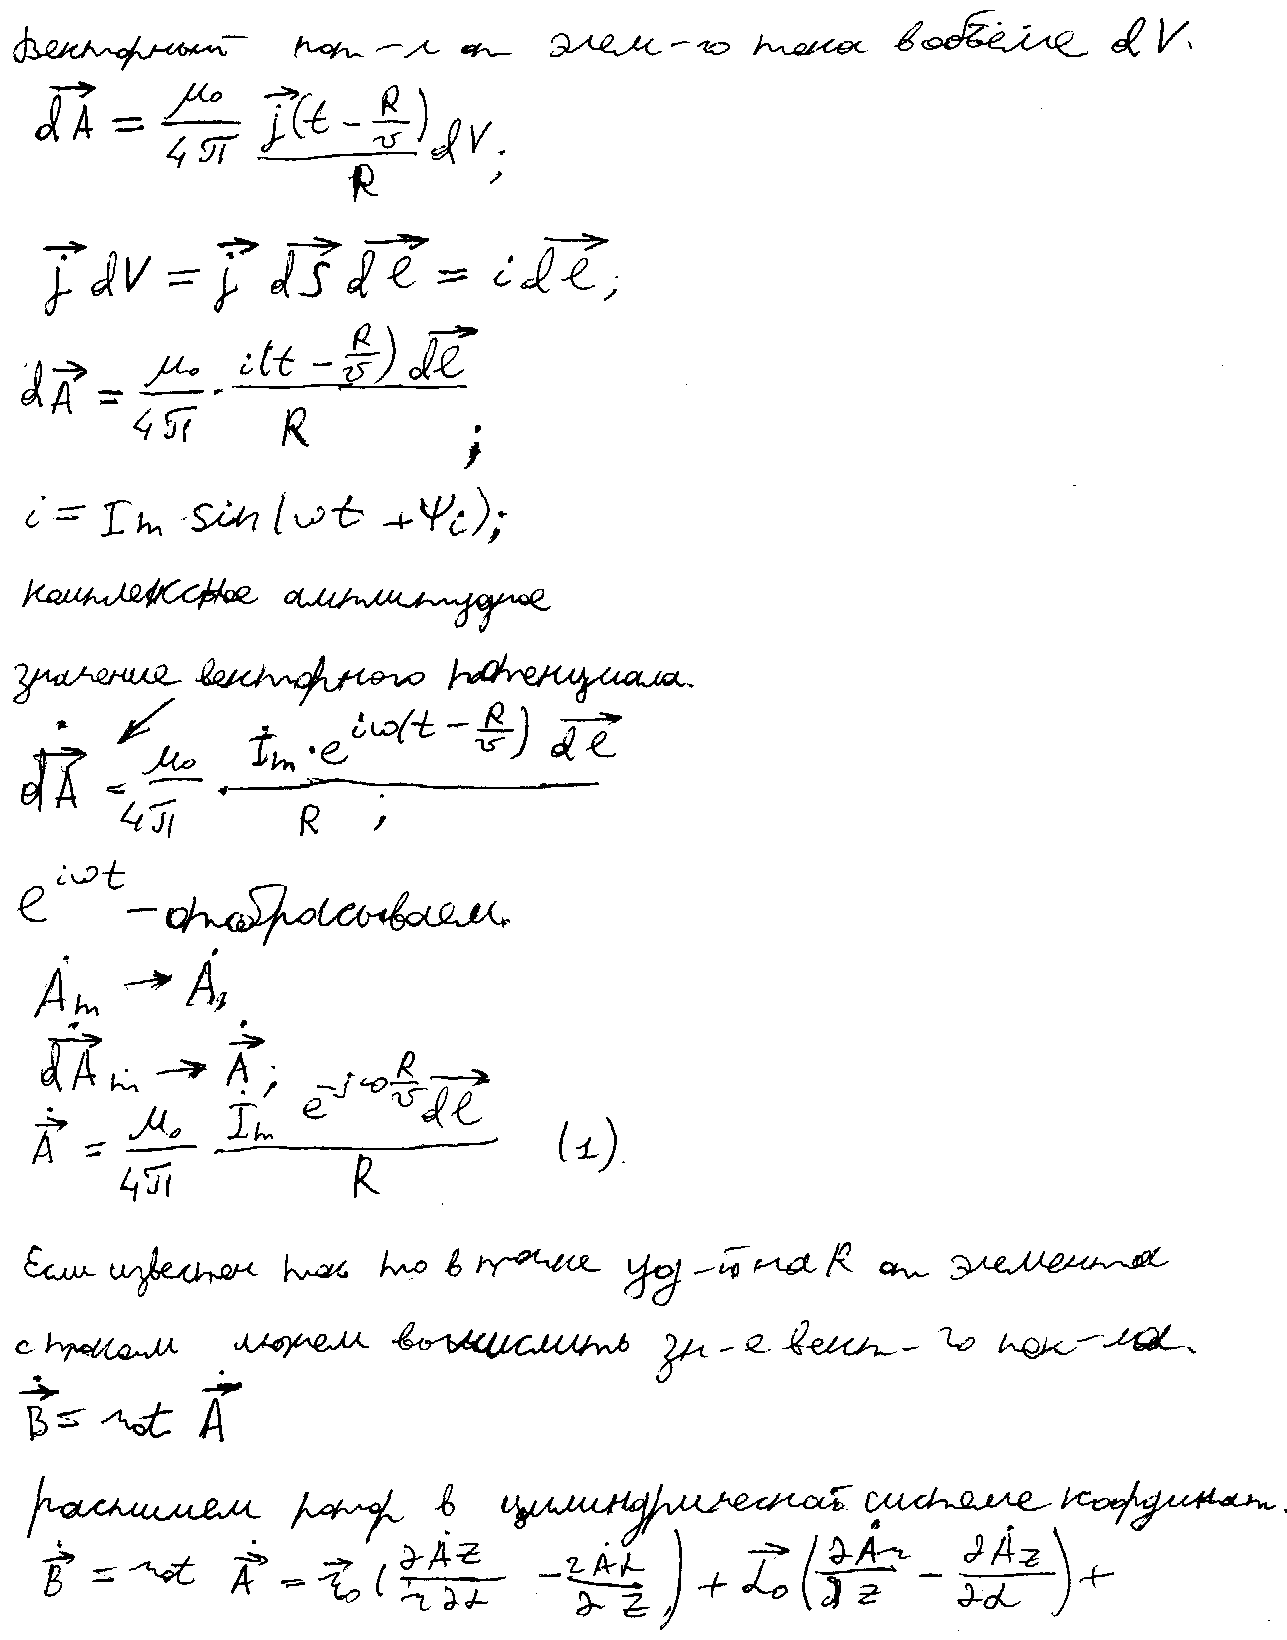 Векторный пот-л от элем-го тока в объёме dV.
dA⃗ = μ₀/4π · j⃗(t - R/v)/R dV;
j⃗ dV = j⃗ dS⃗ dl⃗ = i dl⃗;
dA⃗ = μ₀/4π · i(t - R/v) dl⃗ / R ;
i = Im sin(ωt + Ψi);
комплексное амплитудное
значение векторного потенциала.
dȦ⃗ = μ₀/4π · İm · e^{iω(t - R/v)} dl⃗ / R ;
e^{iωt} – отбрасываем.
Ȧm → Ȧ,
dȦ⃗m → Ȧ⃗;
Ȧ⃗ = μ₀/4π · İm e^{-jωR/v} dl⃗ / R (1).
Если известен ток то в точке уд-й на R от элемента
с током можем вычислить зн-е вект-го пот-ла.
Ḃ⃗ = rot Ȧ⃗
распишем ротор в цилиндрической системе координат.
Ḃ⃗ = rot Ȧ⃗ = r⃗₀ (∂Ȧz/r∂α - ∂Ȧα/∂z) + α⃗₀ (∂Ȧr/∂z - ∂Ȧz/∂α) +